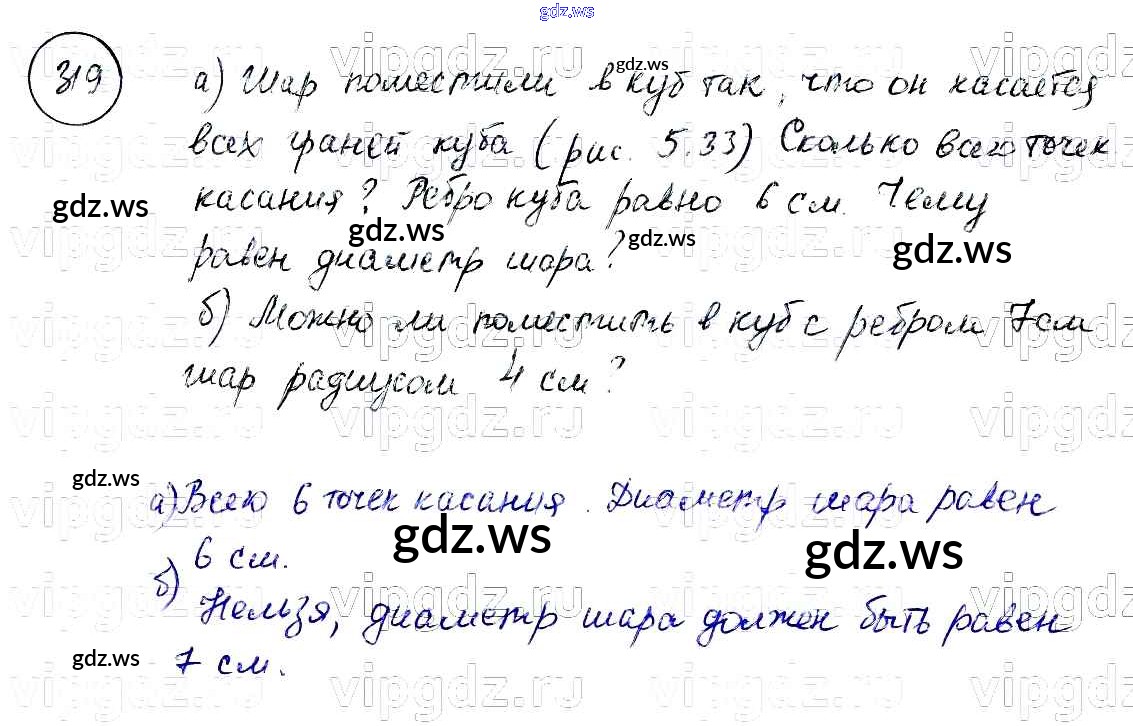 gdz.ws
319
а) Шар поместили в куб так, что он касается
gdz.ws
всех граней куба (рис. 5.33) Сколько всего точек
касания? Ребро куба равно 6 см. Чему
gdz.ws
gdz.ws
gdz.ws
gdz.ws
равен диаметр шара?
б) Можно ли поместить в куб с ребром 7 см
шар радиусом 4 см?
gdz.ws
а) Всего 6 точек касания. Диаметр шара равен
gdz.ws
gdz.ws
6 см.
б)
Нельзя, диаметр шара должен быть равен
gdz.ws
7 см.
vipgdz.ru